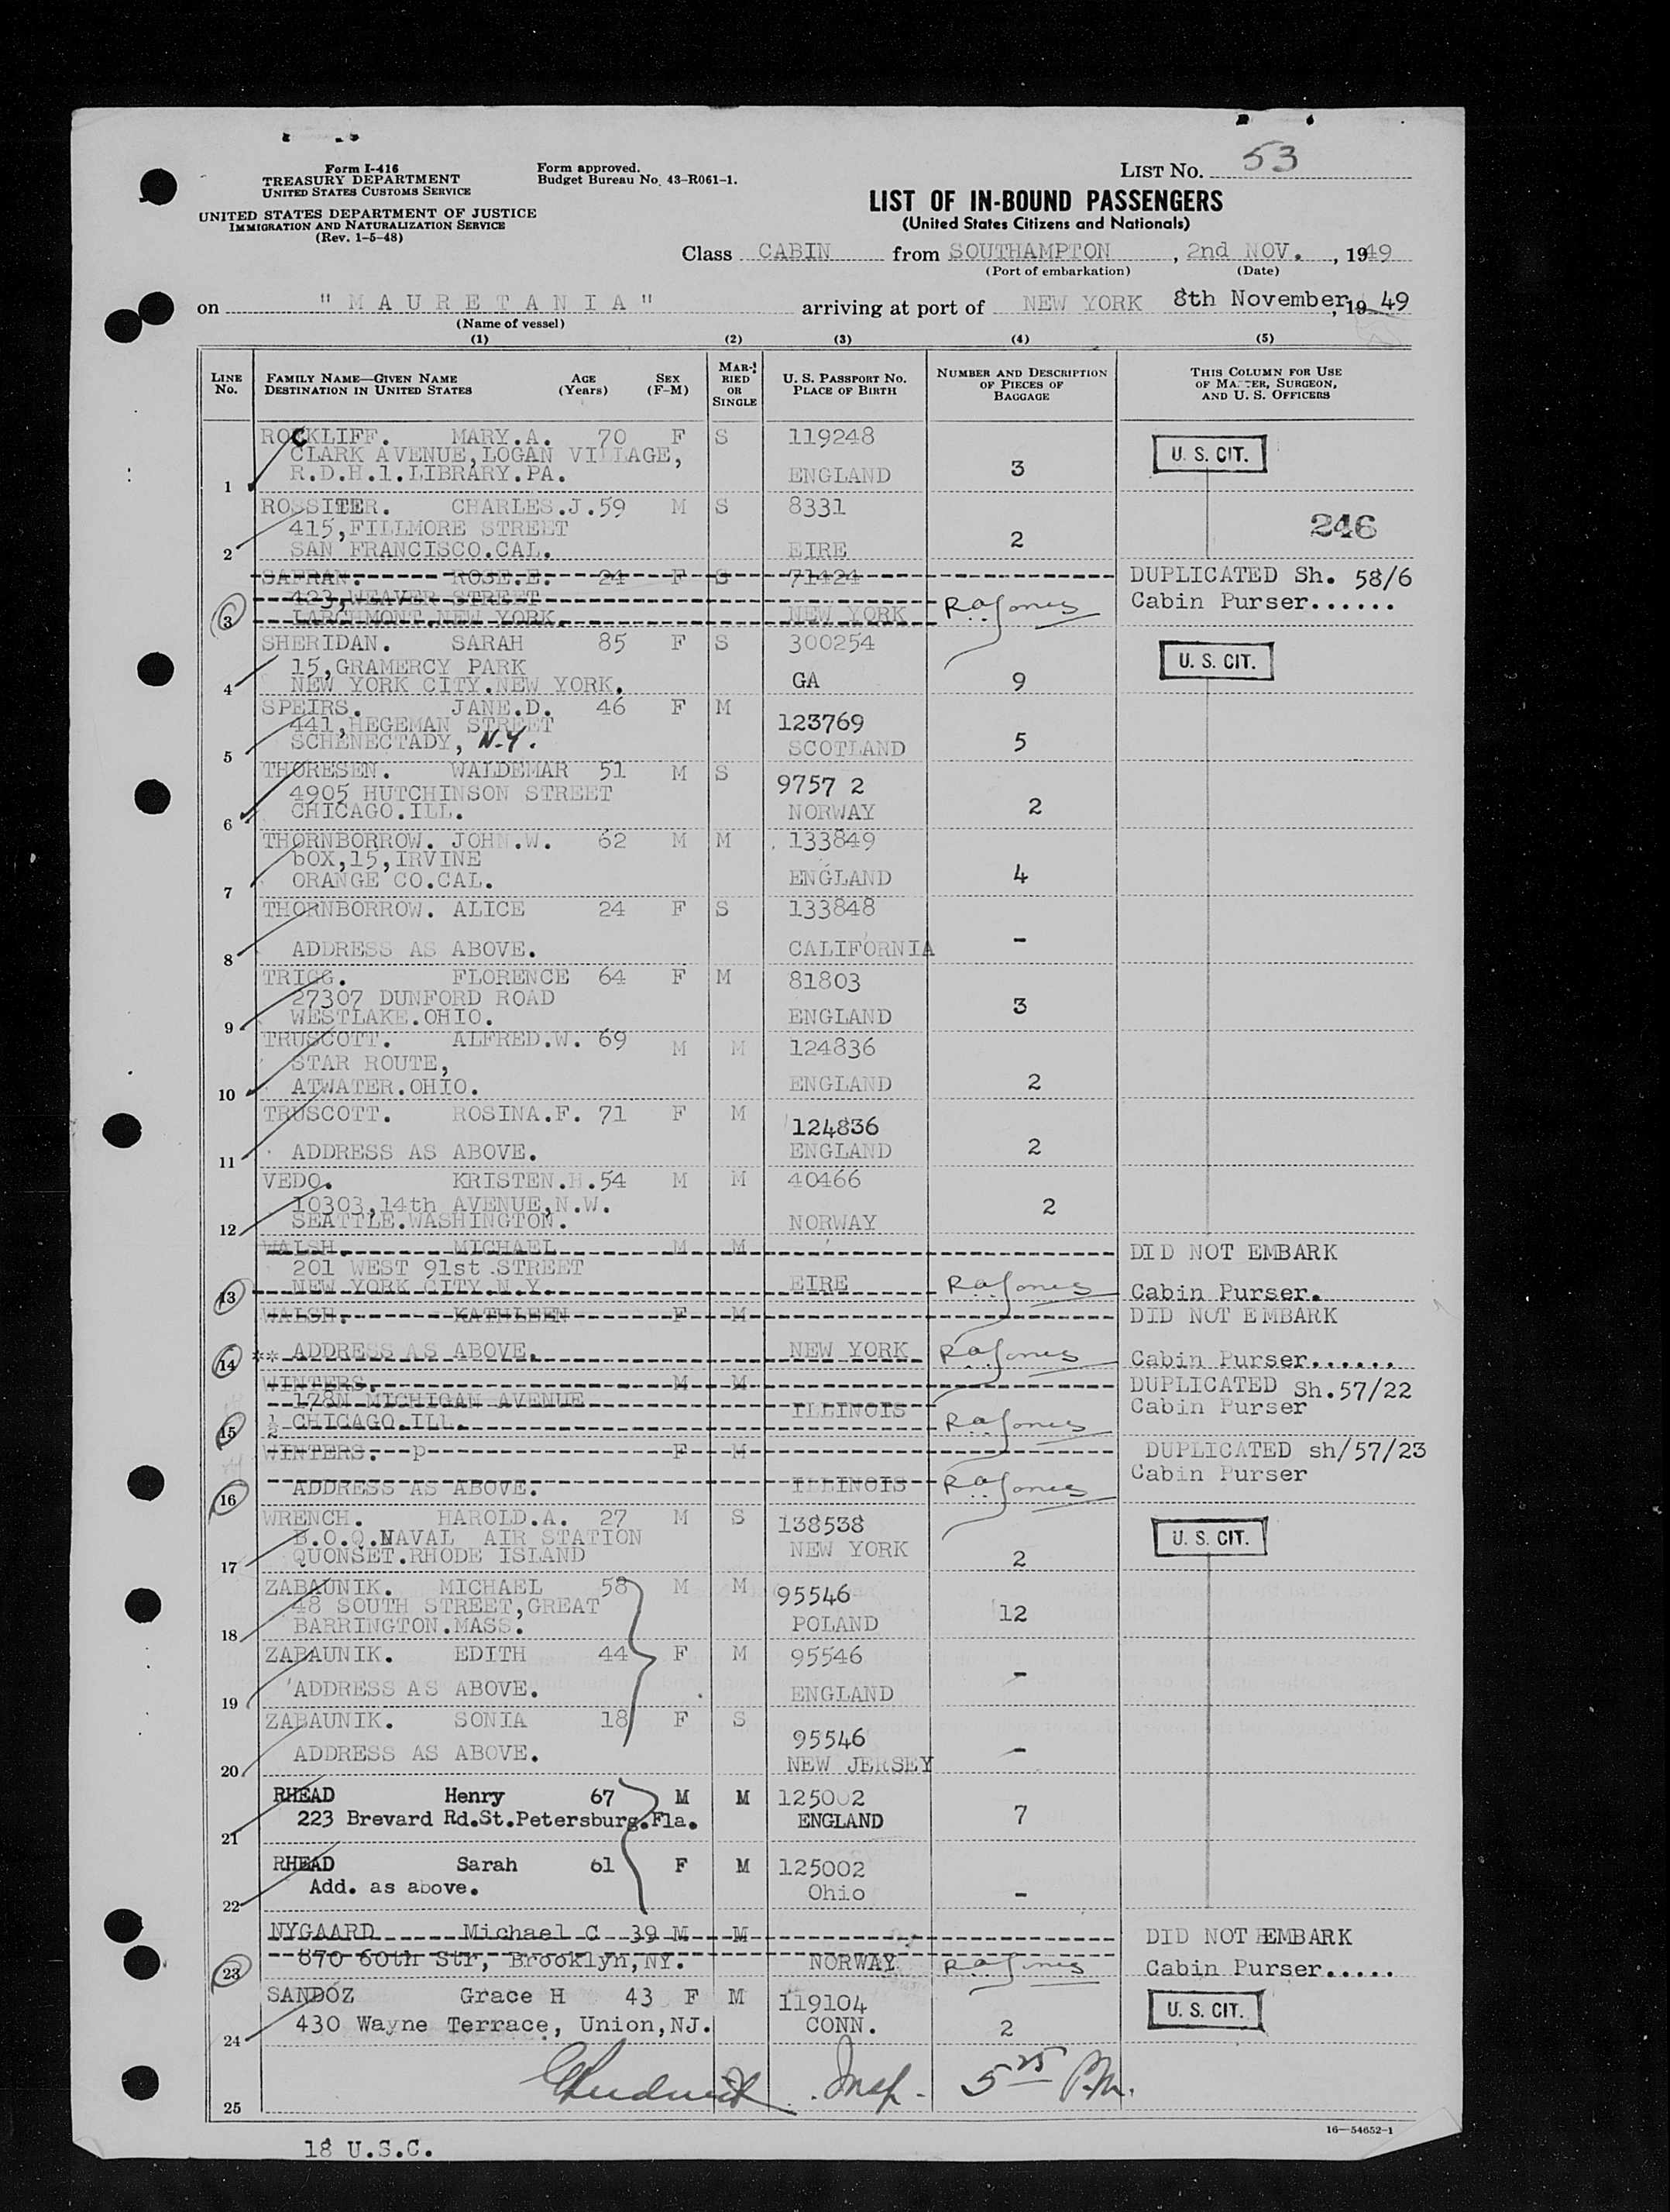 Form I-416
TREASURY DEPARTMENT
UNITED STATES CUSTOMS SERVICE
UNITED STATES DEPARTMENT OF JUSTICE
IMMIGRATION AND NATURALIZATION SERVICE
(Rev. 1-5-48)
Form approved.
Budget Bureau No. 43-R061-1.
LIST NO. 53
LIST OF IN-BOUND PASSENGERS
(United States Citizens and Nationals)
Class CABIN from SOUTHAMPTON, 2nd NOV., 1949
(Port of embarkation) (Date)
on "MAURETANIA" arriving at port of NEW YORK 8th November, 1949
(Name of vessel)
(1) (2) (3) (4) (5)
LINE No. FAMILY NAME—GIVEN NAME DESTINATION IN UNITED STATES AGE (Years) SEX (F-M) MARRIED OR SINGLE U. S. PASSPORT NO. PLACE OF BIRTH NUMBER AND DESCRIPTION OF PIECES OF BAGGAGE THIS COLUMN FOR USE OF MASTER, SURGEON, AND U. S. OFFICERS
ROCKLIFF. MARY.A. 70 F S 119248 U. S. CIT.
CLARK AVENUE,LOGAN VILLAGE,
1 R.D.H.1.LIBRARY.PA. ENGLAND 3
ROSSITER. CHARLES.J.59 M S 8331
415,FILLMORE STREET 246
2 SAN FRANCISCO.CAL. EIRE 2
SAFRAN. ROSE.E. 24 F S 71424 DUPLICATED Sh. 58/6
423,WEAVER STREET
3 LARCHMONT.NEW YORK. NEW YORK RAJones Cabin Purser......
SHERIDAN. SARAH 85 F S 300254 U. S. CIT.
15,GRAMERCY PARK
4 NEW YORK CITY.NEW YORK. GA 9
SPEIRS. JANE.D. 46 F M 123769
441,HEGEMAN STREET
5 SCHENECTADY, N.Y. SCOTLAND 5
THORESEN. WALDEMAR 51 M S 9757 2
4905 HUTCHINSON STREET
6 CHICAGO.ILL. NORWAY 2
THORNBORROW. JOHN.W. 62 M M 133849
bOX,15,IRVINE
7 ORANGE CO.CAL. ENGLAND 4
THORNBORROW. ALICE 24 F S 133848
8 ADDRESS AS ABOVE. CALIFORNIA -
TRIGG. FLORENCE 64 F M 81803
27307 DUNFORD ROAD
9 WESTLAKE.OHIO. ENGLAND 3
TRUSCOTT. ALFRED.W. 69 M M 124836
STAR ROUTE,
10 ATWATER.OHIO. ENGLAND 2
TRUSCOTT. ROSINA.F. 71 F M 124836
11 ADDRESS AS ABOVE. ENGLAND 2
VEDO. KRISTEN.H.54 M M 40466
10303,14th AVENUE,N.W.
12 SEATTLE.WASHINGTON. NORWAY 2
WALSH. MICHAEL M M DID NOT EMBARK
201 WEST 91st STREET
13 NEW YORK CITY.N.Y. EIRE RAJones Cabin Purser.
WALSH. KATHLEEN F M DID NOT EMBARK
14 ** ADDRESS AS ABOVE. NEW YORK RAJones Cabin Purser......
WINTERS. M M DUPLICATED Sh.57/22
178N MICHIGAN AVENUE
15 ½ CHICAGO.ILL. ILLINOIS RAJones Cabin Purser
WINTERS. p F M DUPLICATED sh/57/23
16 ADDRESS AS ABOVE. ILLINOIS RAJones Cabin Purser
WRENCH. HAROLD.A. 27 M S 138538 U. S. CIT.
B.O.Q.NAVAL AIR STATION
17 QUONSET.RHODE ISLAND NEW YORK 2
ZABAUNIK. MICHAEL 58 M M 95546
48 SOUTH STREET,GREAT
18 BARRINGTON.MASS. POLAND 12
ZABAUNIK. EDITH 44 F M 95546
19 ADDRESS AS ABOVE. ENGLAND -
ZABAUNIK. SONIA 18 F S 95546
20 ADDRESS AS ABOVE. NEW JERSEY -
RHEAD Henry 67 M M 125002
21 223 Brevard Rd.St.Petersburg.Fla. ENGLAND 7
RHEAD Sarah 61 F M 125002
22 Add. as above. Ohio -
NYGAARD Michael C 39 M M DID NOT EMBARK
23 870 60th Str, Brooklyn,NY. NORWAY RAJones Cabin Purser.....
SANDOZ Grace H 43 F M 119104 U. S. CIT.
24 430 Wayne Terrace, Union,NJ. CONN. 2
25 Insp. 5 25 P.M.
16—54652-1
18 U.S.C.